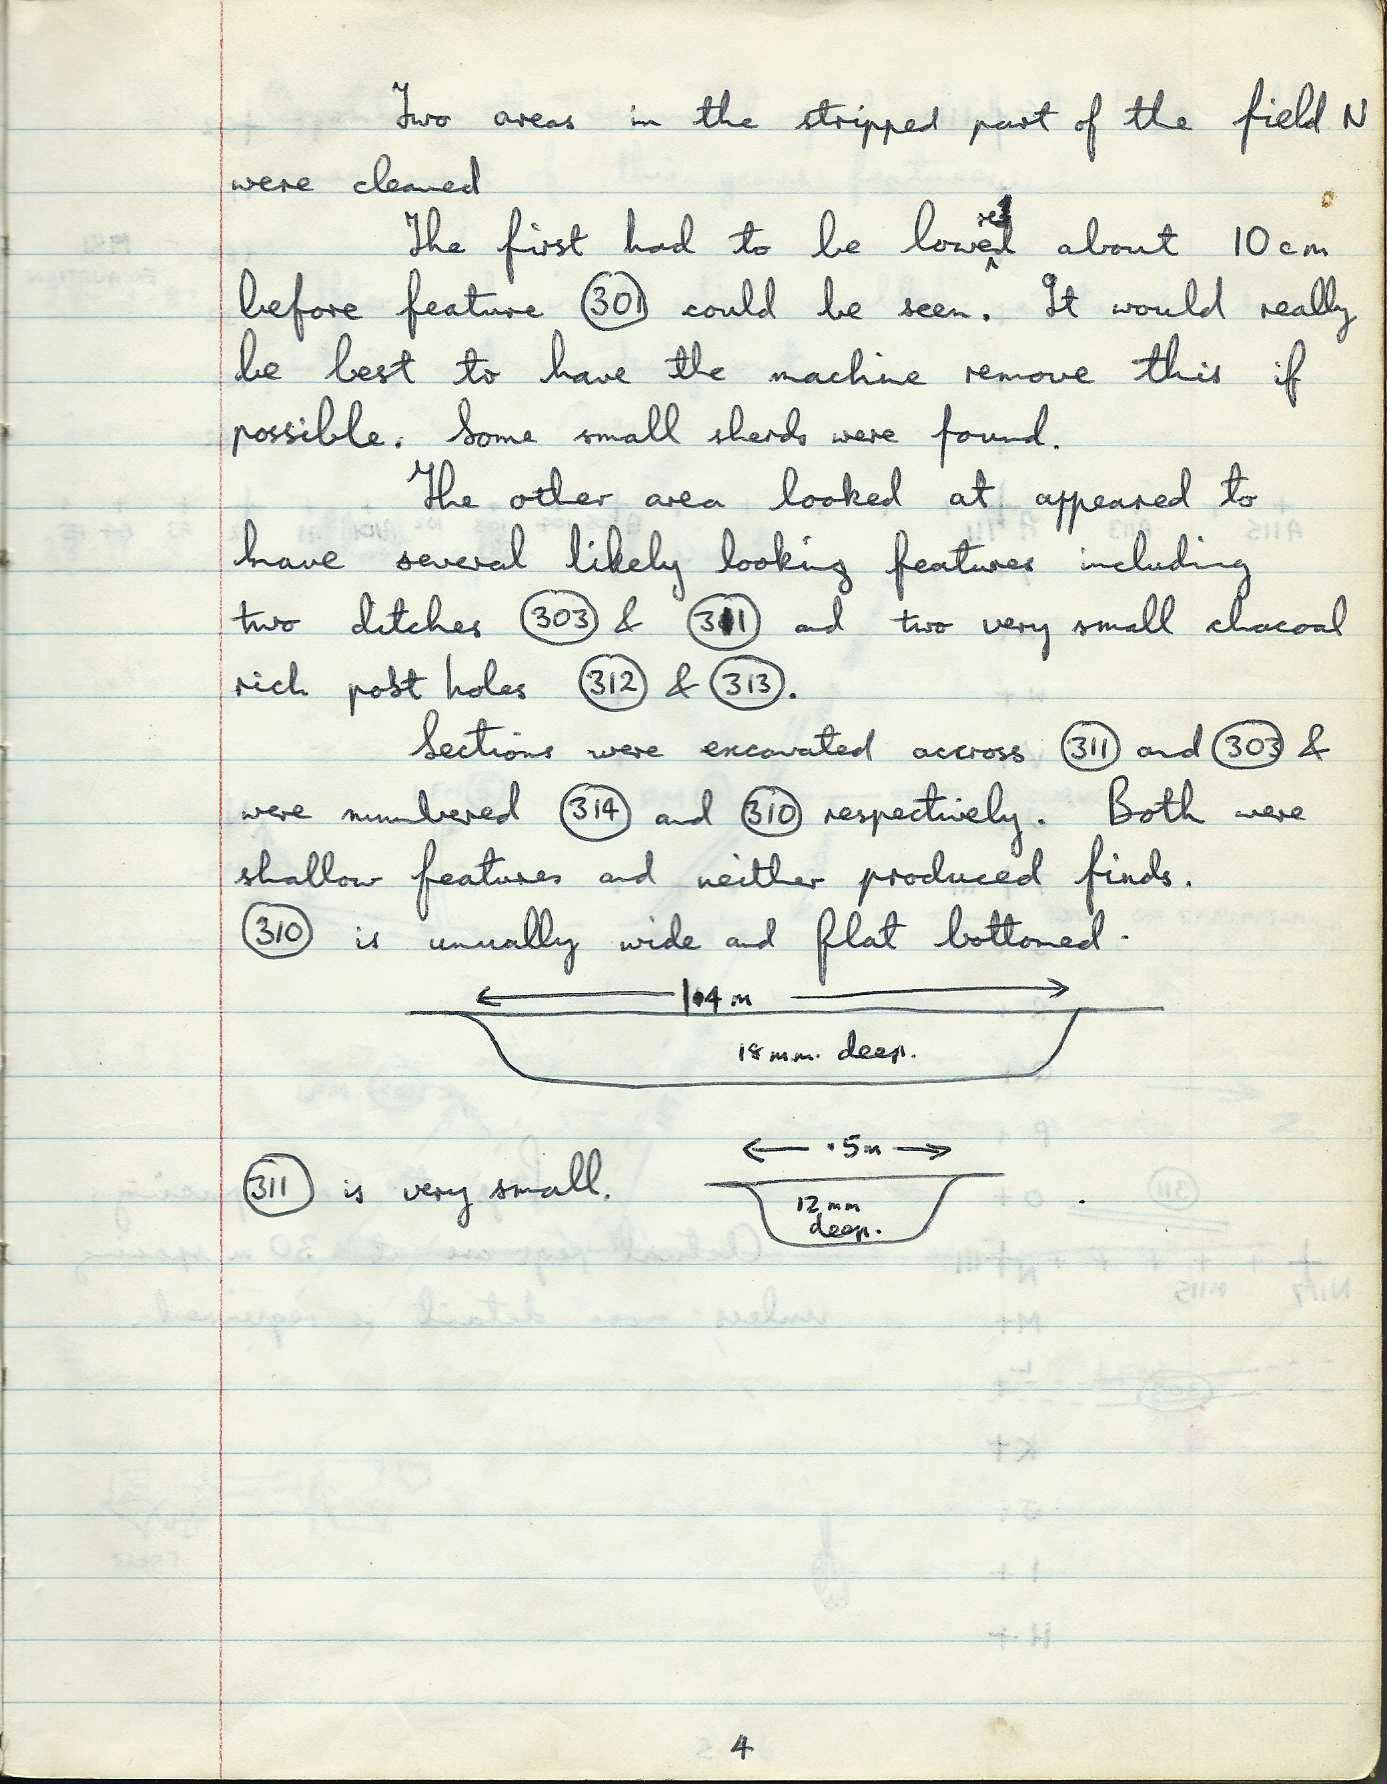 Two areas in the stripped part of the field N
were cleaned
The first had to be lowered about 10cm
before feature 301 could be seen. It would really
be best to have the machine remove this if
possible. Some small sherds were found.
The other area looked at appeared to
have several likely looking features including
two ditches 303 & 311 and two very small chacoal
rich post holes 312 & 313.
Sections were excavated accross 311 and 303 &
were numbered 314 and 310 respectively. Both were
shallow features and neither produced finds.
310 is unually wide and flat bottomed.
1.4 m
18 mm. deep.
.5m
311 is very small.
12 mm
deep.
4